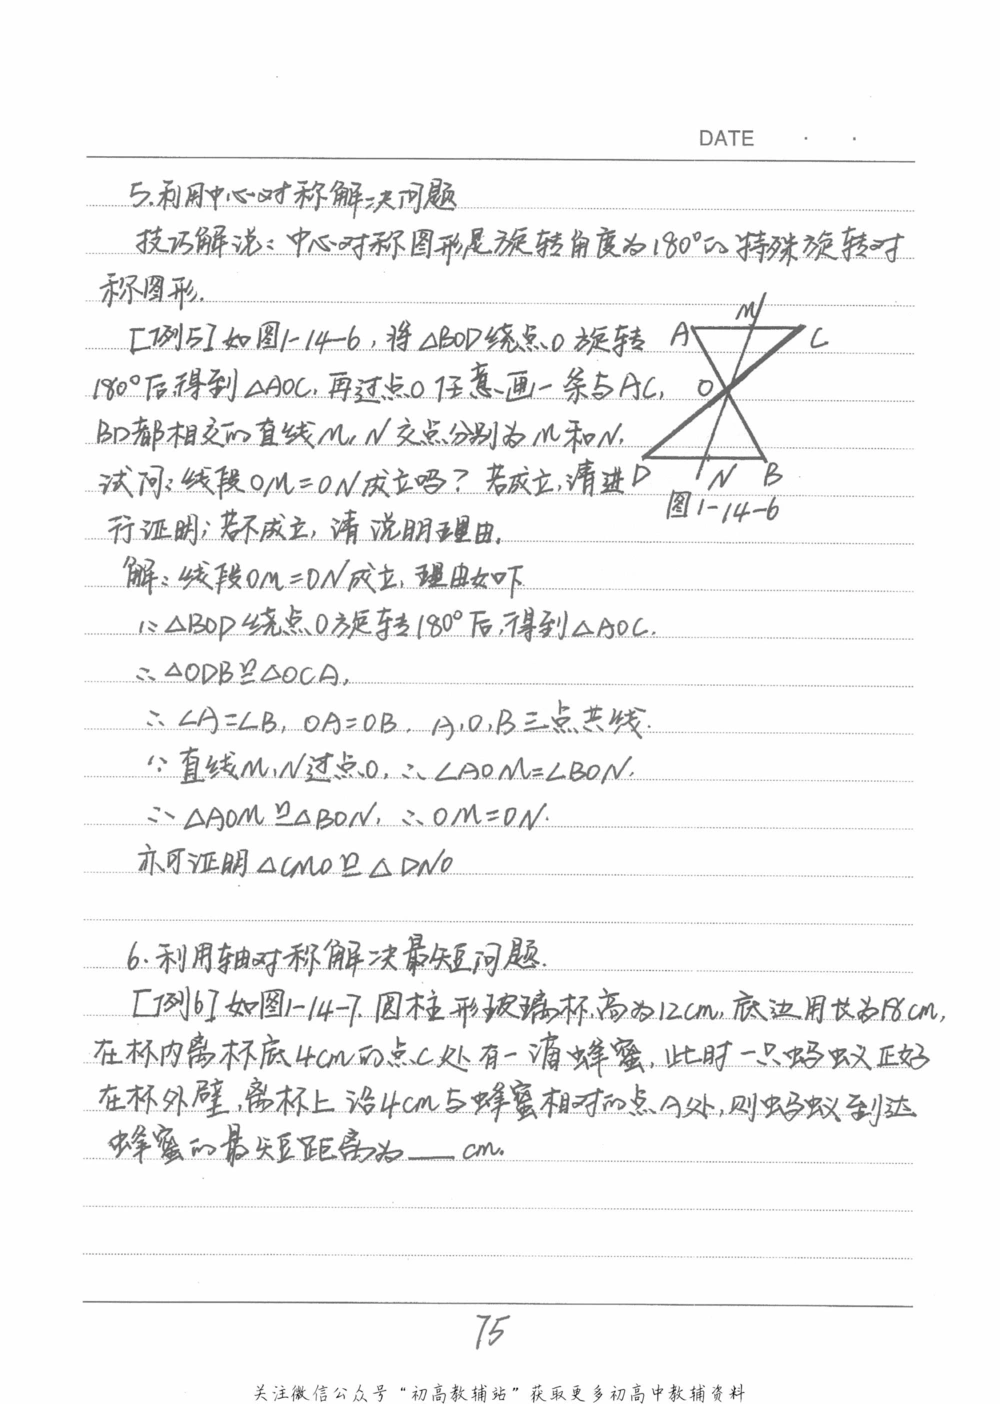 DATE · ·
5.利用中心对称解决问题
技巧解说：中心对称图形是旋转角度为180°的特殊旋转对
称图形.
[例5]如图1-14-6，将△BOD绕点O旋转
180°后得到△AOC，再过点O任意画一条与AC，
BD都相交的直线M，N交点分别为M和N.
试问：线段OM=ON成立吗？若成立，请进
行证明；若不成立，请说明理由.
A M C
O
D N B
图1-14-6
解：线段OM=ON成立，理由如下
∵△BOD绕点O旋转180°后，得到△AOC.
∴△ODB≌△OCA，
∴∠A=∠B，OA=OB. A,O,B三点共线.
∵直线M,N过点O，∴∠AOM=∠BON.
∴△AOM≌△BON，∴OM=ON.
亦可证明△CMO≌△DNO
6.利用轴对称解决最短问题.
[例6]如图1-14-7.圆柱形玻璃杯，高为12cm，底边周长为18cm，
在杯内离杯底4cm的点C处有一滴蜂蜜，此时一只蚂蚁正好
在杯外壁，离杯上沿4cm与蜂蜜相对的点A处，则蚂蚁到达
蜂蜜的最短距离为___cm.
75
关注微信公众号“初高教辅站”获取更多初高中教辅资料